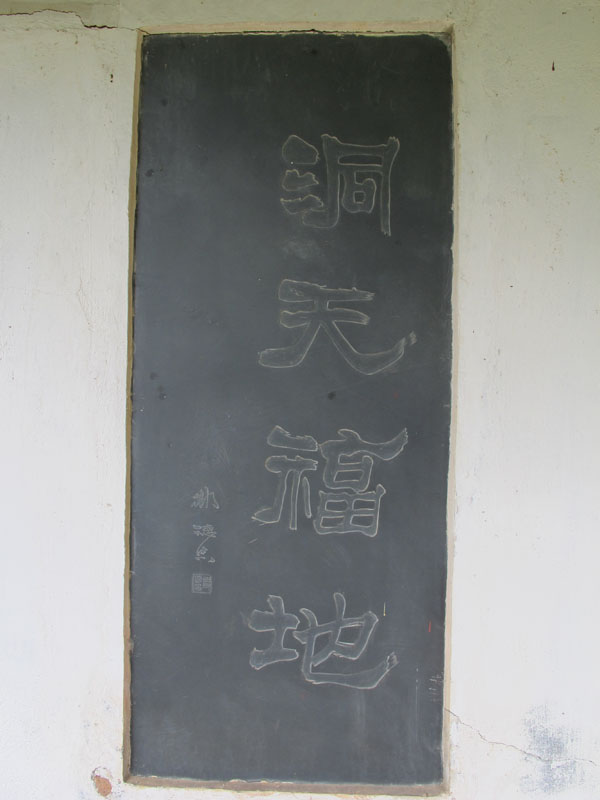 洞天福地